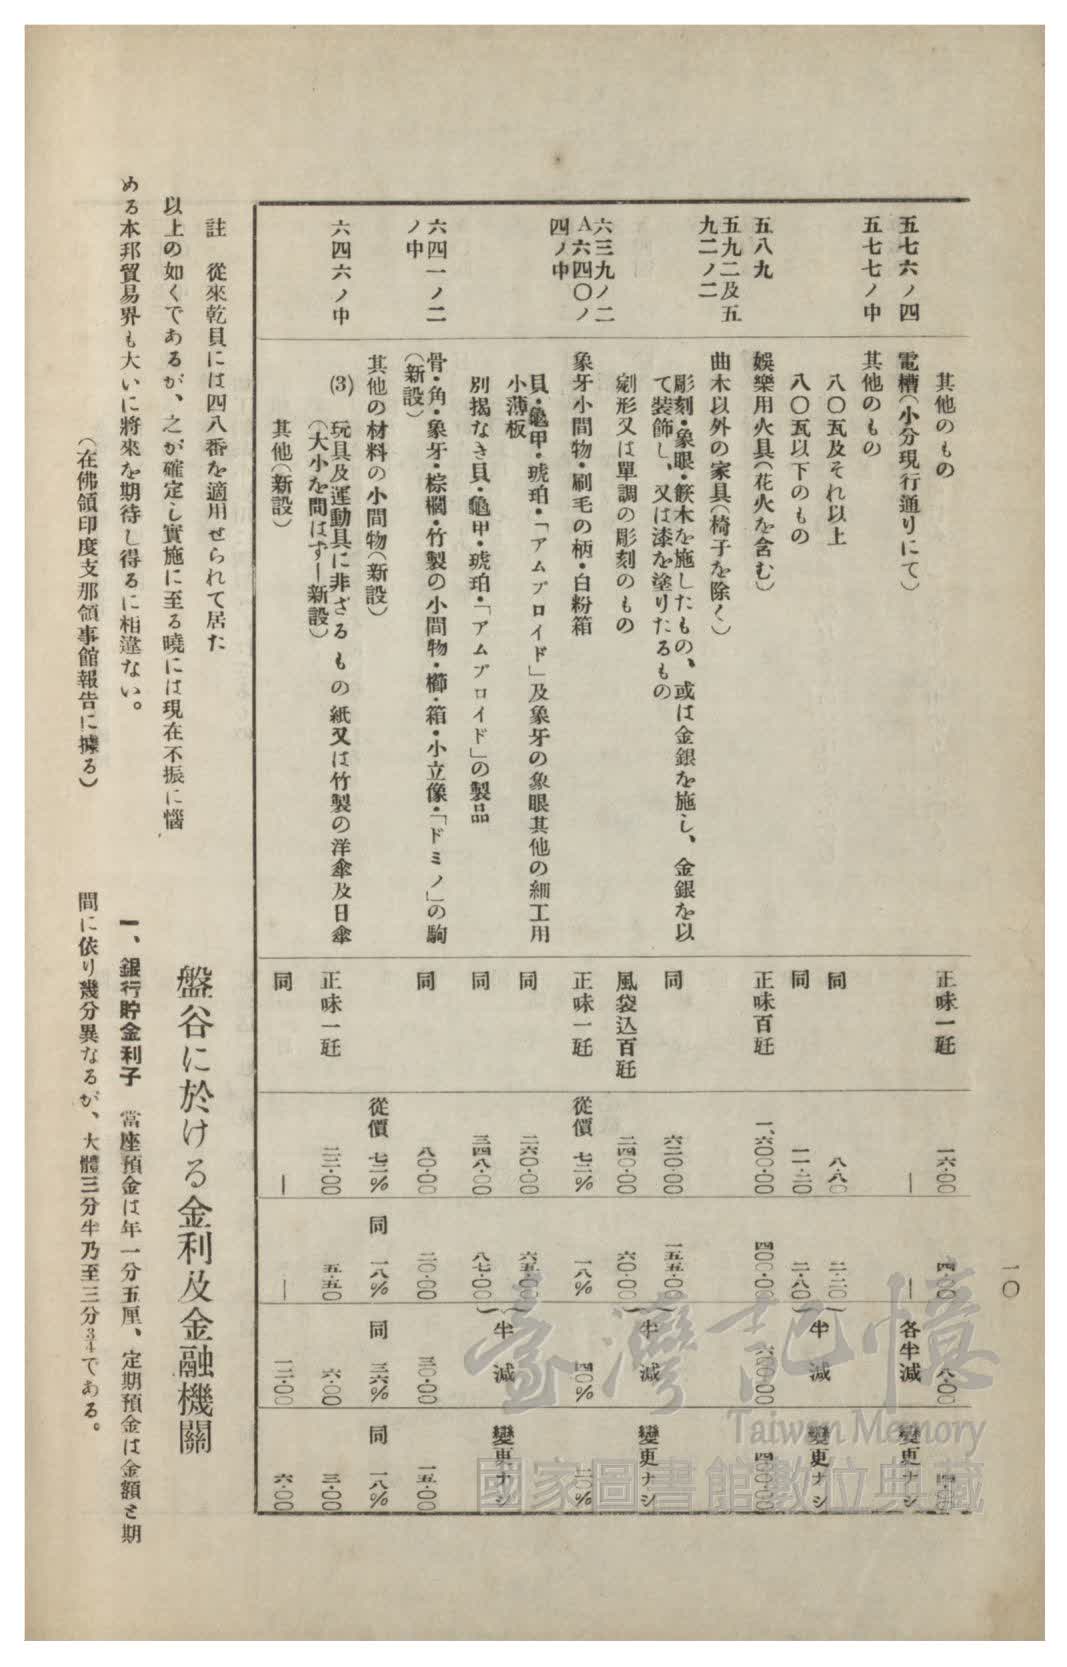 一〇
其他のもの 正味一瓩 一六・〇〇 四・〇〇 八・〇〇 四・〇〇
五七六ノ四 電槽(小分現行通りにて) ― ― 各半減 變更ナシ
五七七ノ中 其他のもの
八〇瓦及それ以上 同 八・八〇 二・二〇
八〇瓦以下のもの 同 一一・二〇 二・八〇 半減 變更ナシ
五八九 娯樂用火具(花火を含む) 正味百瓩 一、六〇〇・〇〇 四〇〇・〇〇 六〇〇・〇〇 四〇〇・〇〇
五九二及五
九二ノ二 曲木以外の家具(椅子を除く)
彫刻・象眼・篏木を施したもの、或は金銀を施し、金銀を以
て装飾し、又は漆を塗りたるもの 同 六二〇・〇〇 一五五・〇〇
刳形又は單調の彫刻のもの 風袋込百瓩 二四〇・〇〇 六〇・〇〇 半減 變更ナシ
六三九ノ二
A六四〇ノ
四ノ中 象牙小間物・刷毛の柄・白粉箱 正味一瓩 從價 七二% 一八% 四〇% 二〇%
貝・龜甲・琥珀・「アムブロイド」及象牙の象眼其他の細工用
小薄板 同 二六〇・〇〇 六五・〇〇
別揭なき貝・龜甲・琥珀・「アムブロイド」の製品 同 三四八・〇〇 八七・〇〇 半減 變更ナシ
六四一ノ二
ノ中 骨・角・象牙・棕櫚・竹製の小間物・櫛・箱・小立像・「ドミノ」の駒
(新設) 同 八〇・〇〇 二〇・〇〇 三〇・〇〇 一五・〇〇
其他の材料の小間物(新設) 從價 七二% 同 一八% 同 三六% 同 一八%
六四六ノ中 (3) 玩具及運動具に非ざるもの紙又は竹製の洋傘及日傘
(大小を問はず―新設) 正味一瓩 二二・〇〇 五・五〇 六・〇〇 三・〇〇
其他(新設) 同 ― ― 一二・〇〇 六・〇〇
註 從來乾貝には四八番を適用せられて居た
以上の如くであるが、之が確定し實施に至る曉には現在不振に惱
める本邦貿易界も大いに將來を期待し得るに相違ない。
(在佛領印度支那領事館報告に據る)
盤谷に於ける金利及金融機關
一、銀行貯金利子 當座預金は年一分五厘、定期預金は金額と期
間に依り幾分異なるが、大體三分半乃至三分3/4である。
臺灣記憶
Taiwan Memory
國家圖書館數位典藏